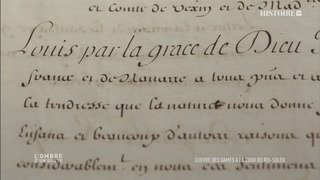 HISTOIRE
et Comte de Vexin et de Mad
Louis par la grace de Dieu
France et de Navarre a tous p
la tendresse que la nature nous donne
Enfans et beaucoup d'autres raisons q
considerablem.t en nous ces sentimens
L'OMBRE
D'UN DOUTE
GUERRE DES DAMES À LA COUR DU ROI-SOLEIL